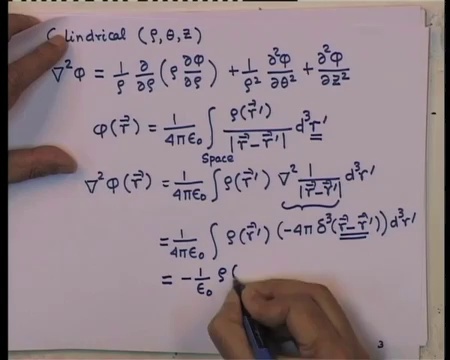 Cylindrical (ρ, θ, z)
∇²φ = 1/ρ ∂/∂ρ (ρ ∂φ/∂ρ) + 1/ρ² ∂²φ/∂θ² + ∂²φ/∂z²
φ(r⃗) = 1/4πε₀ ∫ ρ(r⃗′)/|r⃗-r⃗′| d³r′
Space
∇²φ(r⃗) = 1/4πε₀ ∫ ρ(r⃗′) ∇² 1/|r⃗-r⃗′| d³r′
= 1/4πε₀ ∫ ρ(r⃗′) (-4π δ³(r⃗-r⃗′)) d³r′
= - 1/ε₀ ρ(
3